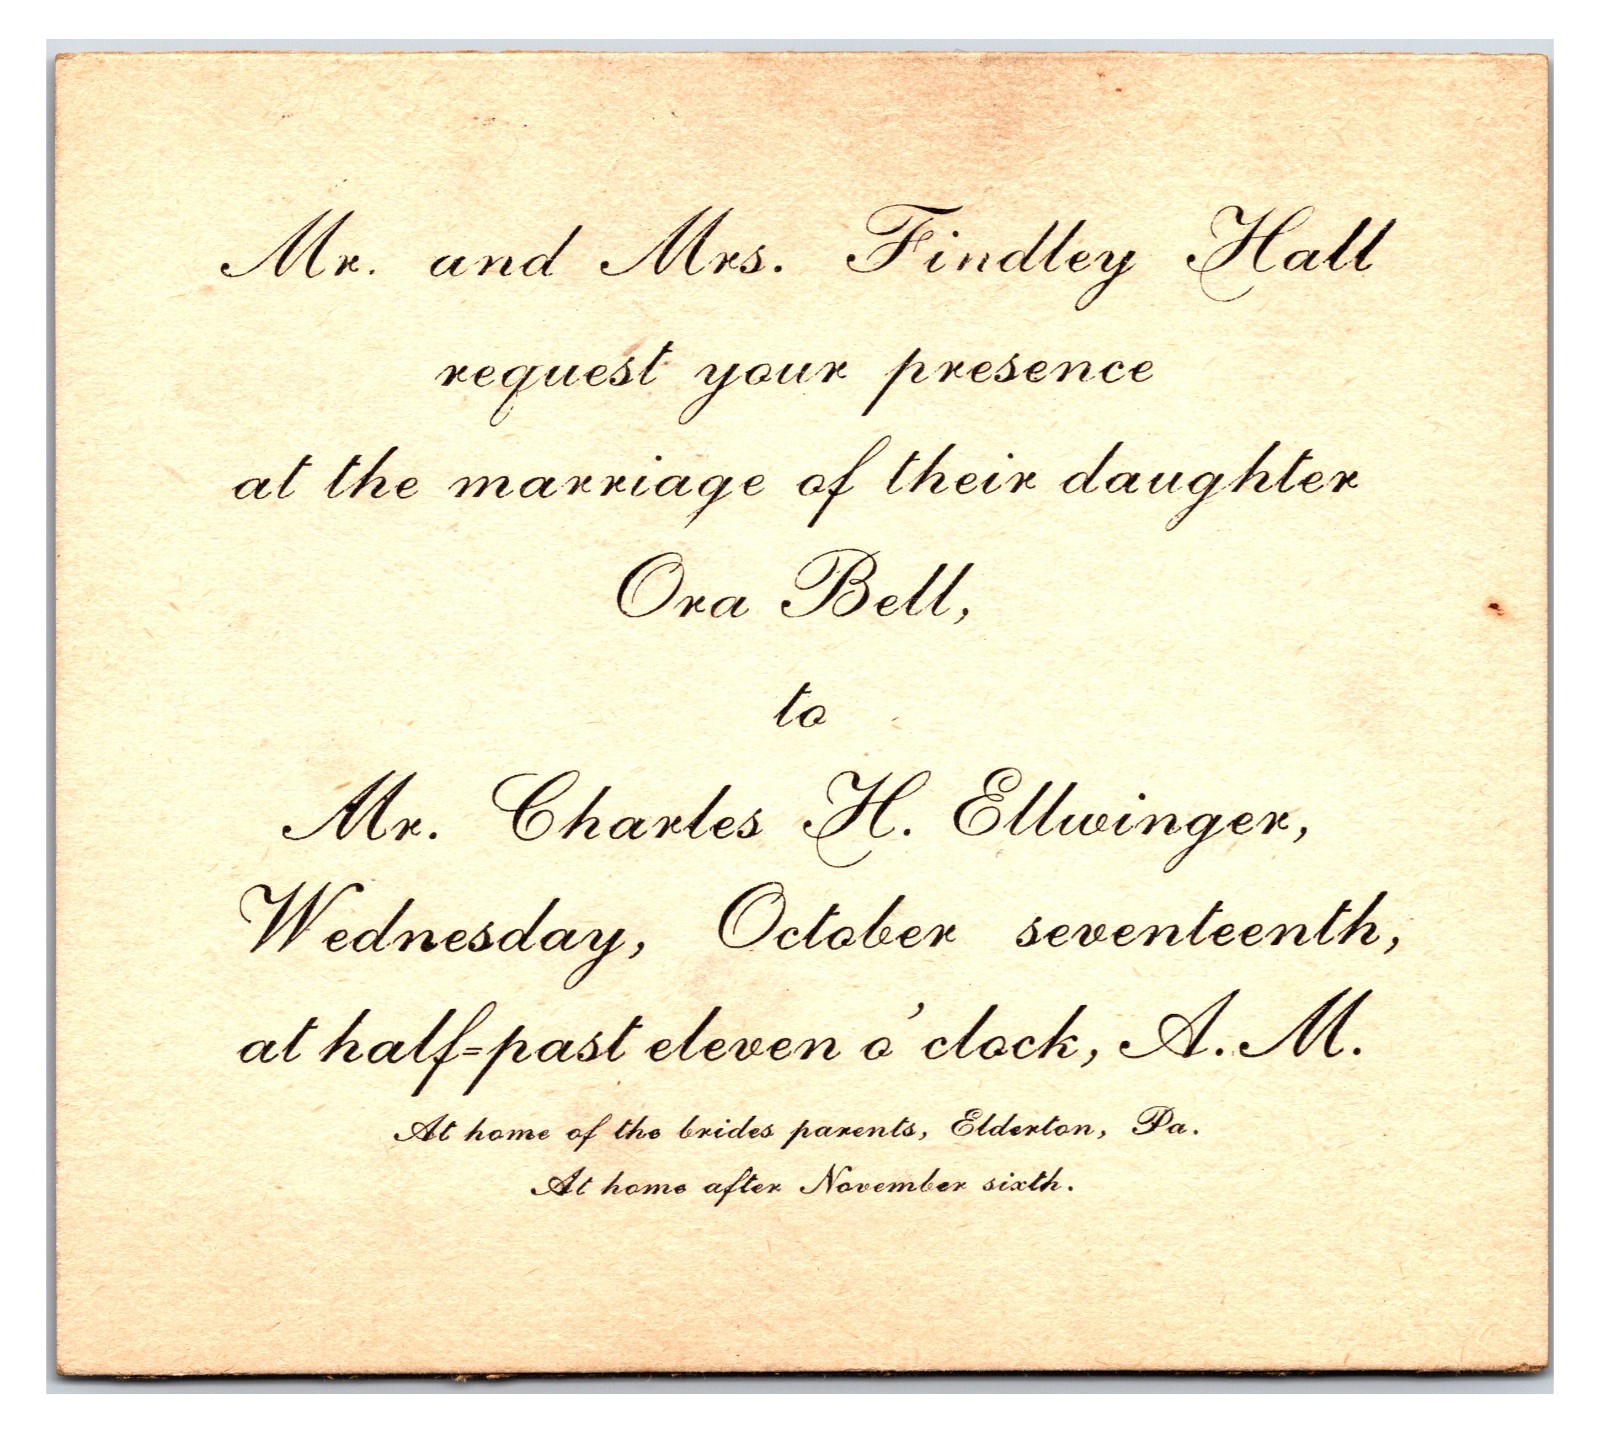 Mr. and Mrs. Findley Hall
request your presence
at the marriage of their daughter
Ora Bell,
to
Mr. Charles H. Ellwinger,
Wednesday, October seventeenth,
at half-past eleven o'clock, A. M.
At home of the brides parents, Elderton, Pa.
At home after November sixth.